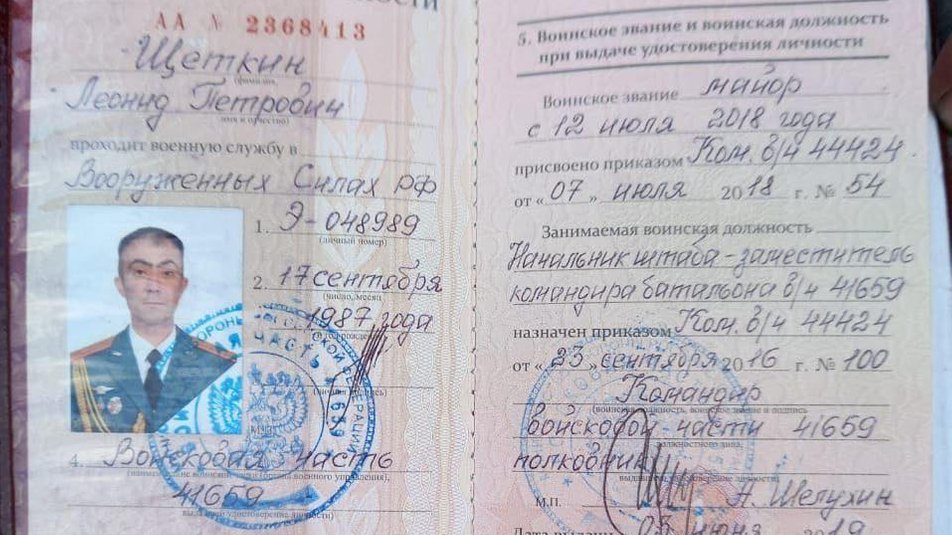 АА № 2368413
Щеткин
(фамилия)
Леонид Петрович
(имя и отчество)
проходит военную службу в
Вооруженных Силах РФ
1. Э-048989
(личный номер)
2. 17 сентября
(число, месяц
1987 года
4. Войсковая часть
41659
5. Воинское звание и воинская должность
при выдаче удостоверения личности
Воинское звание майор
с 12 июля 2018 года
присвоено приказом Ком. в/ч 44424
от « 07 » июля 2018 г. № 54
Занимаемая воинская должность
Начальник штаба - заместитель
командира батальона в/ч 41659
назначен приказом Ком. в/ч 44424
от « 23 » сентября 2016 г. № 100
Командир
(воинская должность, воинское звание и подпись
войсковой части 41659
должностного лица,
полковник
М.П. А. Шелухин
Дата выдачи 05 июня 2019